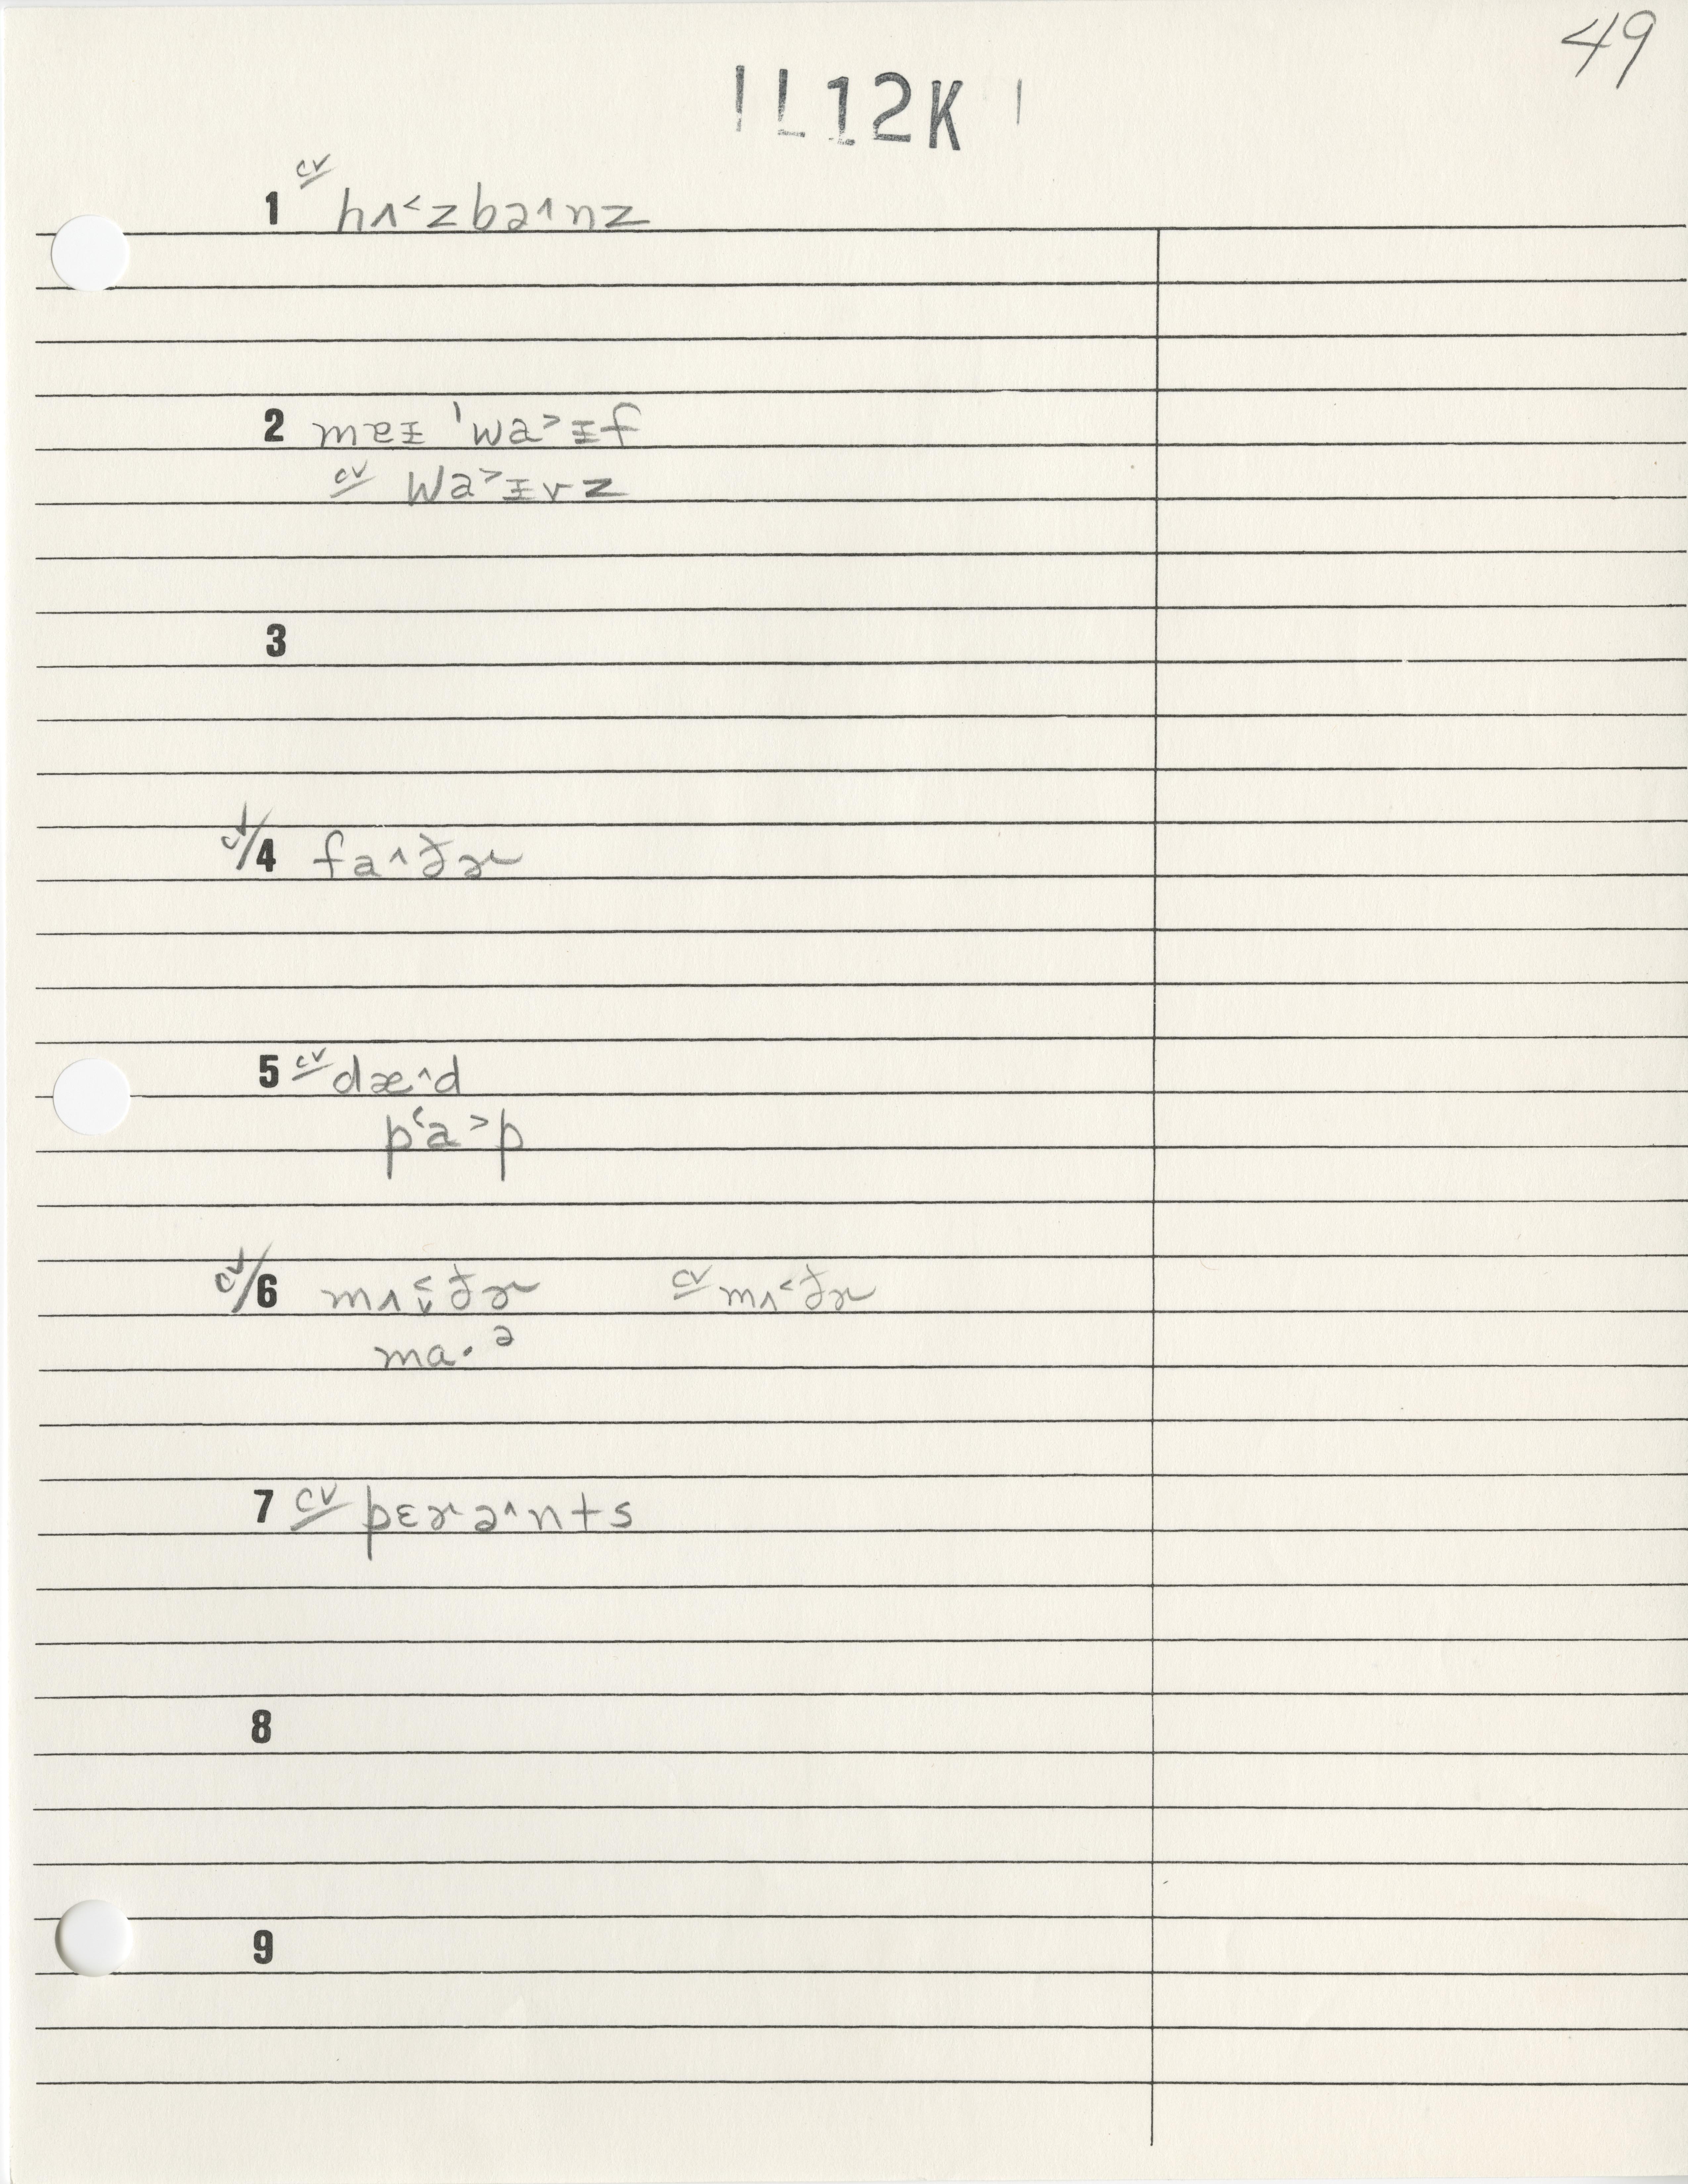 49
IL12K
cv
1 hʌ˂zbə˄nz
2 maᵻ ˈwa˃ᵻf
cv wa˃ᵻvz
3
cv/4 fa˄ðɚ
5 cv dæ˄d
pʻa˃p
cv/6 mʌ˂˅ðɚ cv mʌ˂ðɚ
ma·ᵊ
7 cv pɛɚə˄nts
8
9